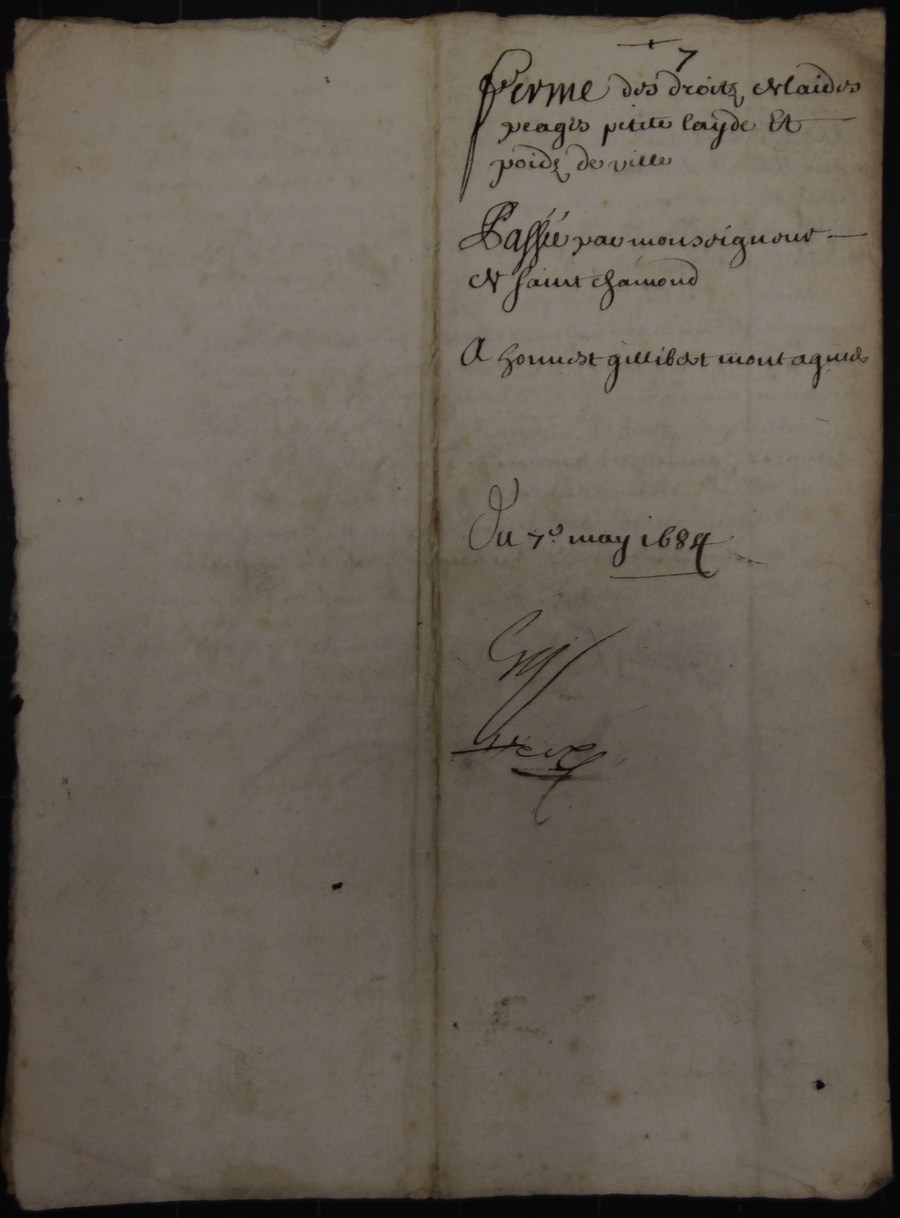 7
Ferme des droitz de laides
peages petite layde Et
poidz de ville
Passée par monseigneur
de saint chamond
A honnest gillibert montagnier
Du 7e. may 1684